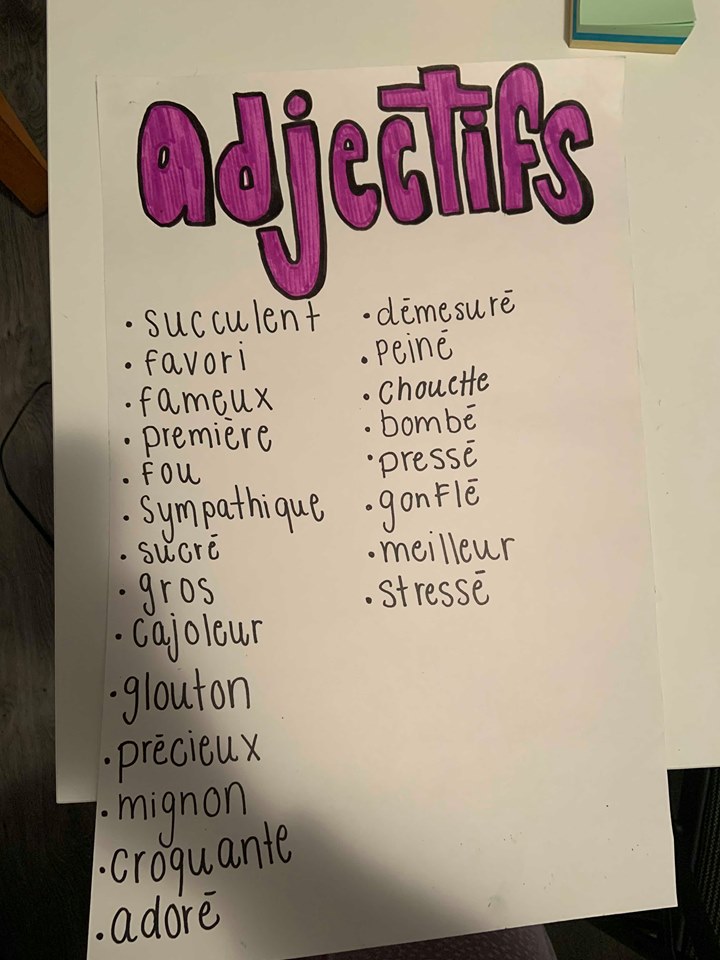 adjectifs
· succulent
· favori
· fameux
· première
· fou
· sympathique
· sucré
· gros
· cajoleur
· glouton
· précieux
· mignon
· croquante
· adoré
· démesuré
· peiné
· chouette
· bombé
· pressé
· gonflé
· meilleur
· stressé